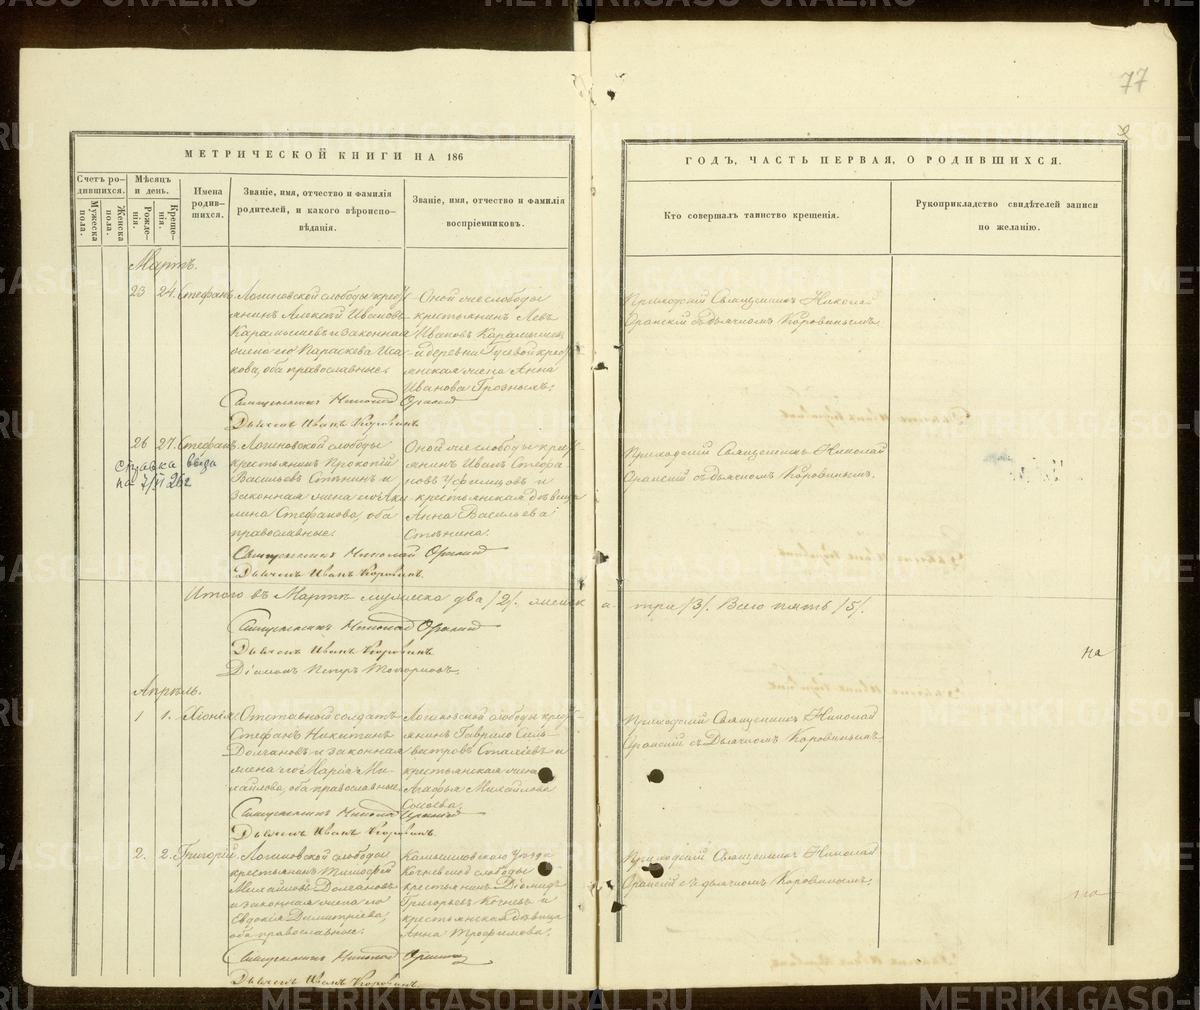 77
МЕТРИЧЕСКОЙ КНИГИ НА 186
ГОДЪ, ЧАСТЬ ПЕРВАЯ, О РОДИВШИХСЯ.
Счетъ ро-
дившихся.
Мужеска
пола.
Женска
пола.
Мѣсяцъ
и день.
Рожде-
нія.
Креще-
нія.
Имена
родив-
шихся.
Званіе, имя, отчество и фамилія
родителей, и какого вѣроиспо-
вѣданія.
Званіе, имя, отчество и фамилія
воспріемниковъ.
Кто совершалъ таинство крещенія.
Рукоприкладство свидѣтелей записи
по желанію.
Мартъ.
23 24. Стефанъ
Логиновской слободы кресть-
янинъ Алексѣй Ивановъ
Карамышевъ и законная
жена его Параскева Иса-
кова, оба православные.
Оной же слободы
крестьянинъ Левъ
Ивановъ Карамышевъ
и деревни Гусевой кресть-
янская жена Анна
Иванова Грозныхъ.
Приходскій Священникъ Николай
съ дьячкомъ Коровинымъ.
Священникъ Николай
Дьячекъ Иванъ Коровинъ.
26 27. Стефанъ
справка выда
на 7/VI 26 г
Логиновской слободы
крестьянинъ Прокопій
Васильевъ и
законная жена его Аки-
лина Стефанова, оба
православные.
Оной же слободы кресть-
янинъ Иванъ Стефа-
новъ и
крестьянская дѣвица
Анна Васильева
Приходскій Священникъ Николай
съ дьячкомъ Коровинымъ.
Священникъ Николай
Дьячекъ Иванъ Коровинъ.
Итого въ Мартѣ мужеска два /2/. женска три /3/. Всего пять /5/.
Священникъ Николай
Дьячекъ Иванъ Коровинъ
Діаконъ Петръ Топорковъ.
на
Апрѣль.
1 1. Хіонія
Отставный солдатъ
Стефанъ Никитинъ
Долгановъ и законная
жена его Марія Ми-
хайлова, оба православные.
Логиновской слободы кресть-
янинъ Гаврило Силь-
вестровъ и
крестьянская жена
Агафья Михайлова
Приходскій Священникъ Николай
съ Дьячкомъ Коровинымъ.
Священникъ Николай
Дьячекъ Иванъ Коровинъ.
2. 2. Григорій
Логиновской слободы
крестьянинъ Тимофей
Михайловъ Долгановъ
и законная жена его
Евдокія Димитріева,
оба православные.
Камышловскаго Уѣзда
Кочневской слободы
крестьянинъ Діомидъ
Григорьевъ Кочневъ и
крестьянская дѣвица
Анна Трофимова.
Приходскій Священникъ Николай
съ дьячкомъ Коровинымъ.
на
Священникъ Николай
Дьячекъ Иванъ Коровинъ.
METRIKI.GASO-URAL.RU